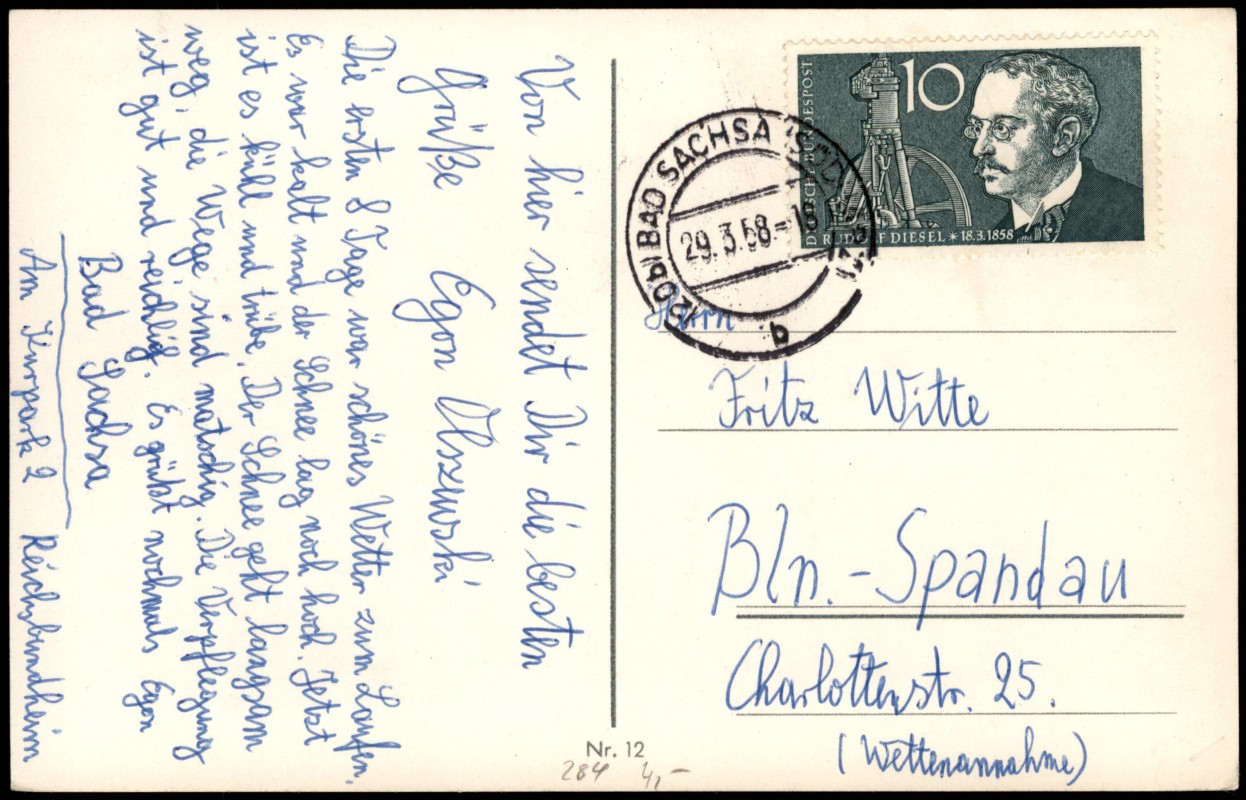 Von hier sendet Dir die besten
Grüße Egon Olszewski
Die ersten 8 Tage war schönes Wetter zum Laufen.
Es war kalt und der Schnee lag noch hoch. Jetzt
ist es kühl und trübe. Der Schnee geht langsam
weg, die Wege sind matschig. Die Verpflegung
ist gut und reichlig. Es grüßt nochmals Egon
Bad Sachsa
Am Kurpark 2 Reichsbundheim
DEUTSCHE BUNDESPOST
10
DR. RUDOLF DIESEL * 18.3.1858
(20b) BAD SACHSA (SÜDHARZ)
29.3.58-18
b
Herrn
Fritz Witte
Bln.-Spandau
Charlottenstr. 25.
(Wettenannahme)
Nr. 12
284 4,-